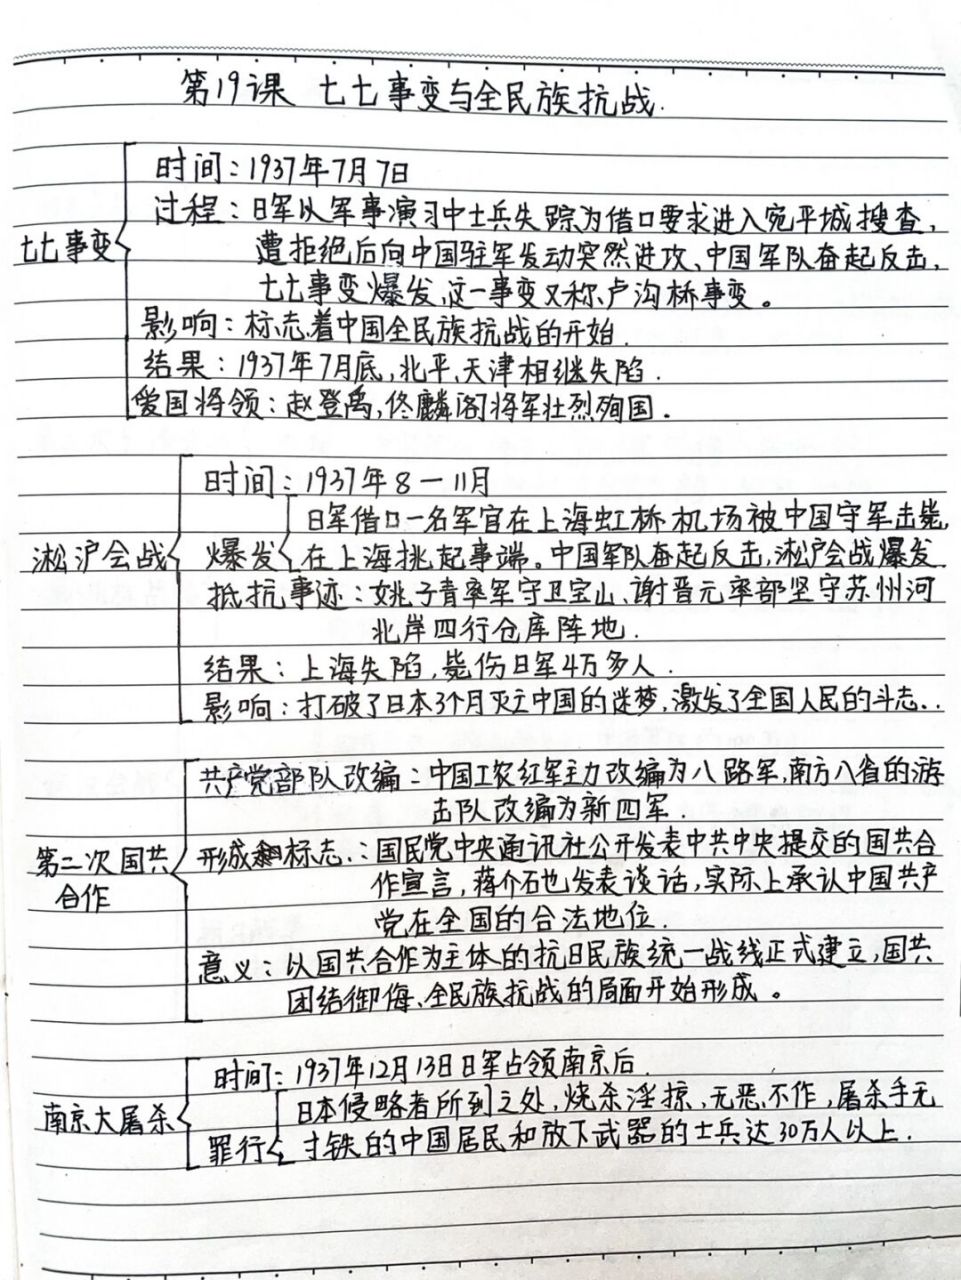 第19课 七七事变与全民族抗战.
时间：1937年7月7日
过程：日军以军事演习中士兵失踪为借口要求进入宛平城搜查,
七七事变
遭拒绝后向中国驻军发动突然进攻、中国军队奋起反击,
七七事变爆发,这一事变又称卢沟桥事变。
影响：标志着中国全民族抗战的开始.
结果：1937年7月底,北平、天津相继失陷.
爱国将领：赵登禹,佟麟阁将军壮烈殉国.
时间：1937年8—11月
日军借口一名军官在上海虹桥机场被中国守军击毙,
淞沪会战
爆发 在上海挑起事端。中国军队奋起反击,淞沪会战爆发.
抵抗事迹：姚子青率军守卫宝山、谢晋元率部坚守苏州河
北岸四行仓库阵地.
结果：上海失陷,毙伤日军4万多人.
影响：打破了日本3个月灭亡中国的迷梦,激发了全国人民的斗志..
共产党部队改编：中国工农红军主力改编为八路军,南方八省的游
击队改编为新四军.
第二次国共
合作
形成标志：国民党中央通讯社公开发表中共中央提交的国共合
作宣言,蒋介石也发表谈话,实际上承认中国共产
党在全国的合法地位.
意义：以国共合作为主体的抗日民族统一战线正式建立,国共
团结御侮、全民族抗战的局面开始形成。
时间：1937年12月13日日军占领南京后.
南京大屠杀
日本侵略者所到之处,烧杀淫掠,无恶不作,屠杀手无
罪行 寸铁的中国居民和放下武器的士兵达30万人以上.